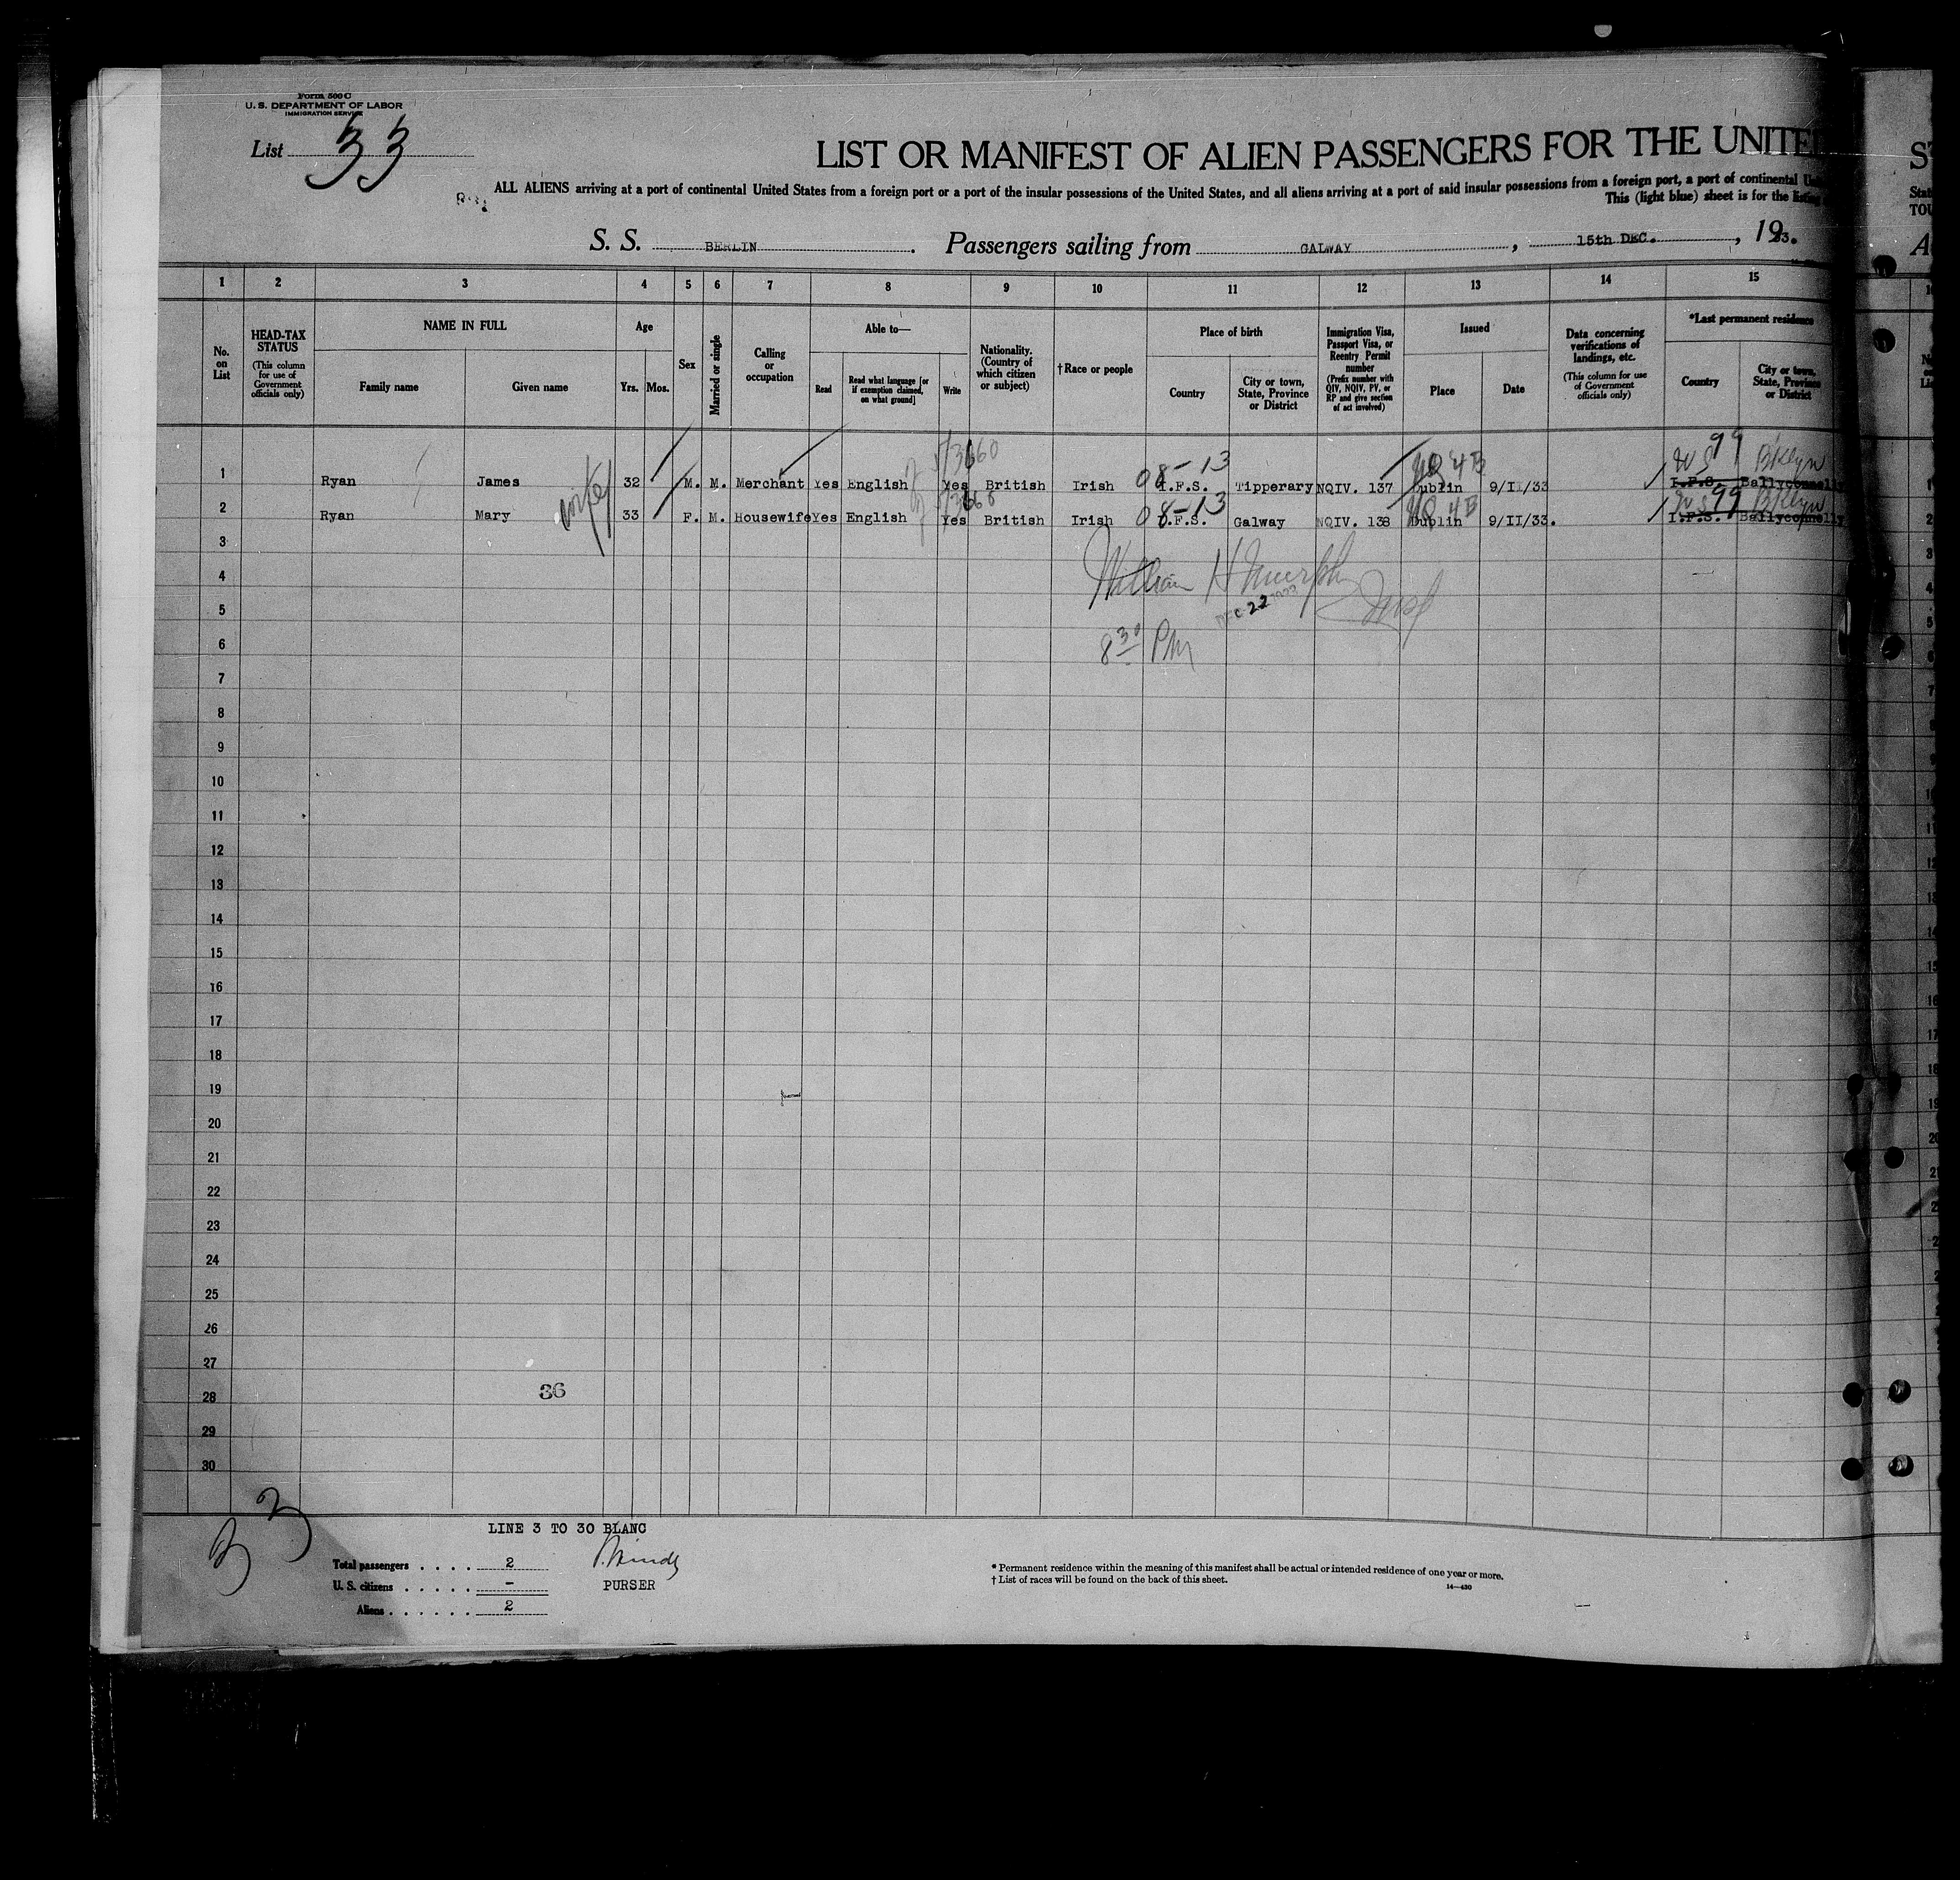 Form 500 C
U. S. DEPARTMENT OF LABOR
IMMIGRATION SERVICE
List 33
LIST OR MANIFEST OF ALIEN PASSENGERS FOR THE UNITED
ALL ALIENS arriving at a port of continental United States from a foreign port or a port of the insular possessions of the United States, and all aliens arriving at a port of said insular possessions from a foreign port, a port of continental
This (light blue) sheet is for the listing
S. S. BERLIN. Passengers sailing from GALWAY, 15th DEC., 1933.
1 2 3 4 5 6 7 8 9 10 11 12 13 14 15
No. on List
HEAD-TAX STATUS
(This column for use of Government officials only)
NAME IN FULL
Family name Given name
Age
Yrs. Mos.
Sex
Married or single
Calling or occupation
Able to—
Read
Read what language [or if exemption claimed, on what ground]
Write
Nationality. (Country of which citizen or subject)
†Race or people
Place of birth
Country
City or town, State, Province or District
Immigration Visa, Passport Visa, or Reentry Permit number
(Prefix number with QIV, NQIV, PV, or RP and give section of act involved)
Issued
Place Date
Data concerning verifications of landings, etc.
(This column for use of Government officials only)
*Last permanent residence
Country
City or town, State, Province or District
08-13 4B 99 Bklyn
1 Ryan James 32 M. M. Merchant Yes English Yes British Irish I.F.S. Tipperary NQIV. 137 Dublin 9/II/33 I.F.S. Ballyconnelly
wife
08-13 4B 99 Bklyn
2 Ryan Mary 33 F. M. Housewife Yes English Yes British Irish I.F.S. Galway NQIV. 138 Dublin 9/II/33. I.F.S. Ballyconnelly
3
William H Murphy
4
Insp
DEC 22 1933
5
6
8 30 PM
7
8
9
10
11
12
13
14
15
16
17
18
19
20
21
22
23
24
25
26
27
28
36
29
30
33
LINE 3 TO 30 BLANC
Total passengers . . . . . 2
U. S. citizens . . . . . -
PURSER
Aliens . . . . . . 2
* Permanent residence within the meaning of this manifest shall be actual or intended residence of one year or more.
† List of races will be found on the back of this sheet.
14—430